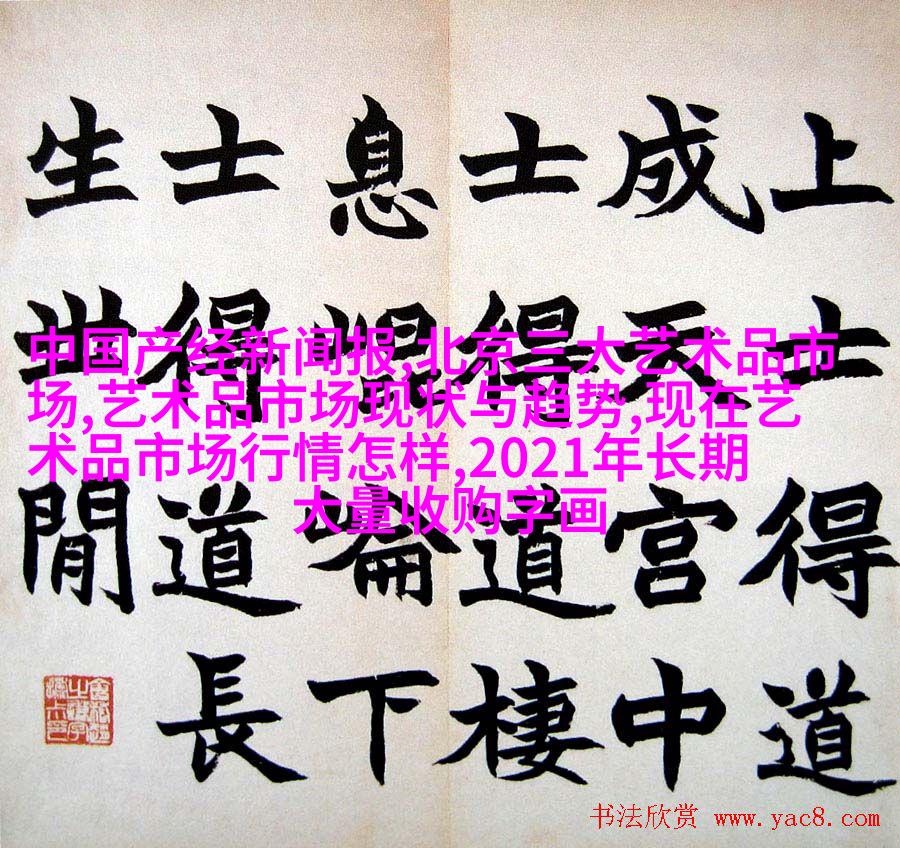 上士得道
成天宮中
士得道棲
息崐崘下
士得道長
生世閒
中国产经新闻报,北京三大艺术品市
场,艺术品市场现状与趋势,现在艺
术品市场行情怎样,2021年长期
大量收购字画
书法欣赏 www.yac8.com